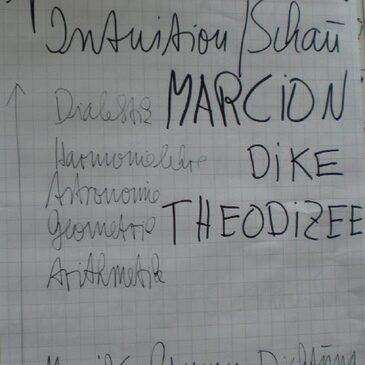 Intuition/Schau
Dialektik MARCION
Harmonielehre DiKE
Astronomie
Geometrie THEODiZEE
Arithmetik